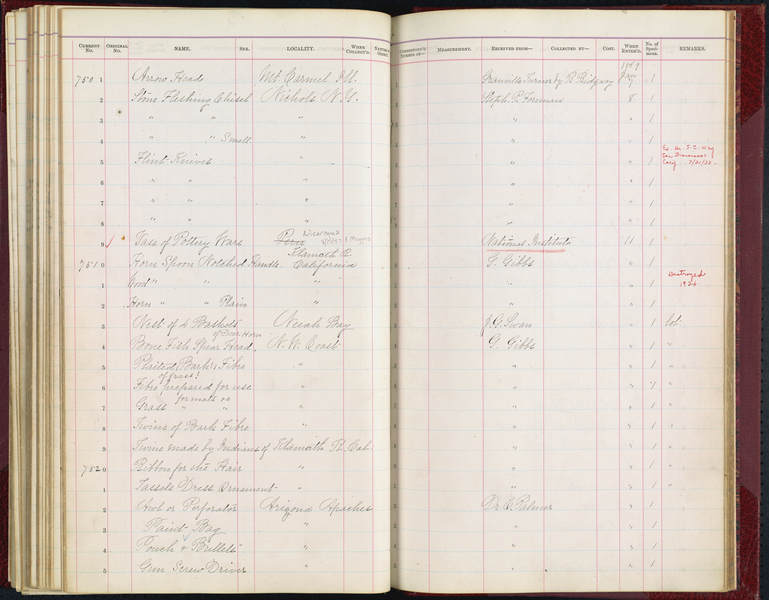 CURRENT No. ORIGINAL No. NAME. SEX. LOCALITY. WHEN COLLECT'D. NATURE OF OBJECT. CORRESPOND'G NUMBER OF— MEASUREMENT. RECEIVED FROM— COLLECTED BY— COST. WHEN ENTER'D. No. of Specimens. REMARKS.
1869
750 1 Arrow Heads Mt. Carmel Ill. 1 Granville Turner by R. Ridgway Jan 7 1
2 Stone Fleshing Chisel Nichols N.Y. 2 Steph. P. Foreman 8 1
3 " " " 3 " " 1
4 " " Small " 4 " " 1
5 Flint Knives " 5 " " 1
6 " " " 6 " " 1
7 " " " 7 " " 1
8 " " " 8 " " 1
9 Vase of Pottery Ware Peru Nicaragua 9 National Institute 11 1
751 0 Horn Spoon Notched Handle. Klamath R. California 0 G. Gibbs " 1
1 Wood " " " 1 " " 1 Destroyed 1926
2 Horn " " Plain " 2 " " 1
3 Nest of 4 Baskets Neeah Bay 3 J. G. Swan " 1 lot
of Deer Horn
4 Bone Fish Spear Head. N. W. Coast 4 G. Gibbs " 1 "
5 Plaited Bark & Fibre " 5 " " 1 "
of grass?
6 Fibre prepared for use " 6 " " 1 "
for mats &c
7 Grass " " " 7 " " 1 "
8 Twine of Bark Fibre " 8 " " 1
9 Twine made by Indians of Klamath R. Cal 9 " " 1 "
752 0 Ribbon for the Hair " 0 " " 1 "
1 Tassels Dress Ornament " 1 " " 1 "
2 Awl or Perforator Arizona Apaches 2 Dr. E. Palmer " 1
3 Paint Bag " 3 " " 1
4 Pouch & Bullets " 4 " " 1
5 Gun Screw Driver " 5 " " 1